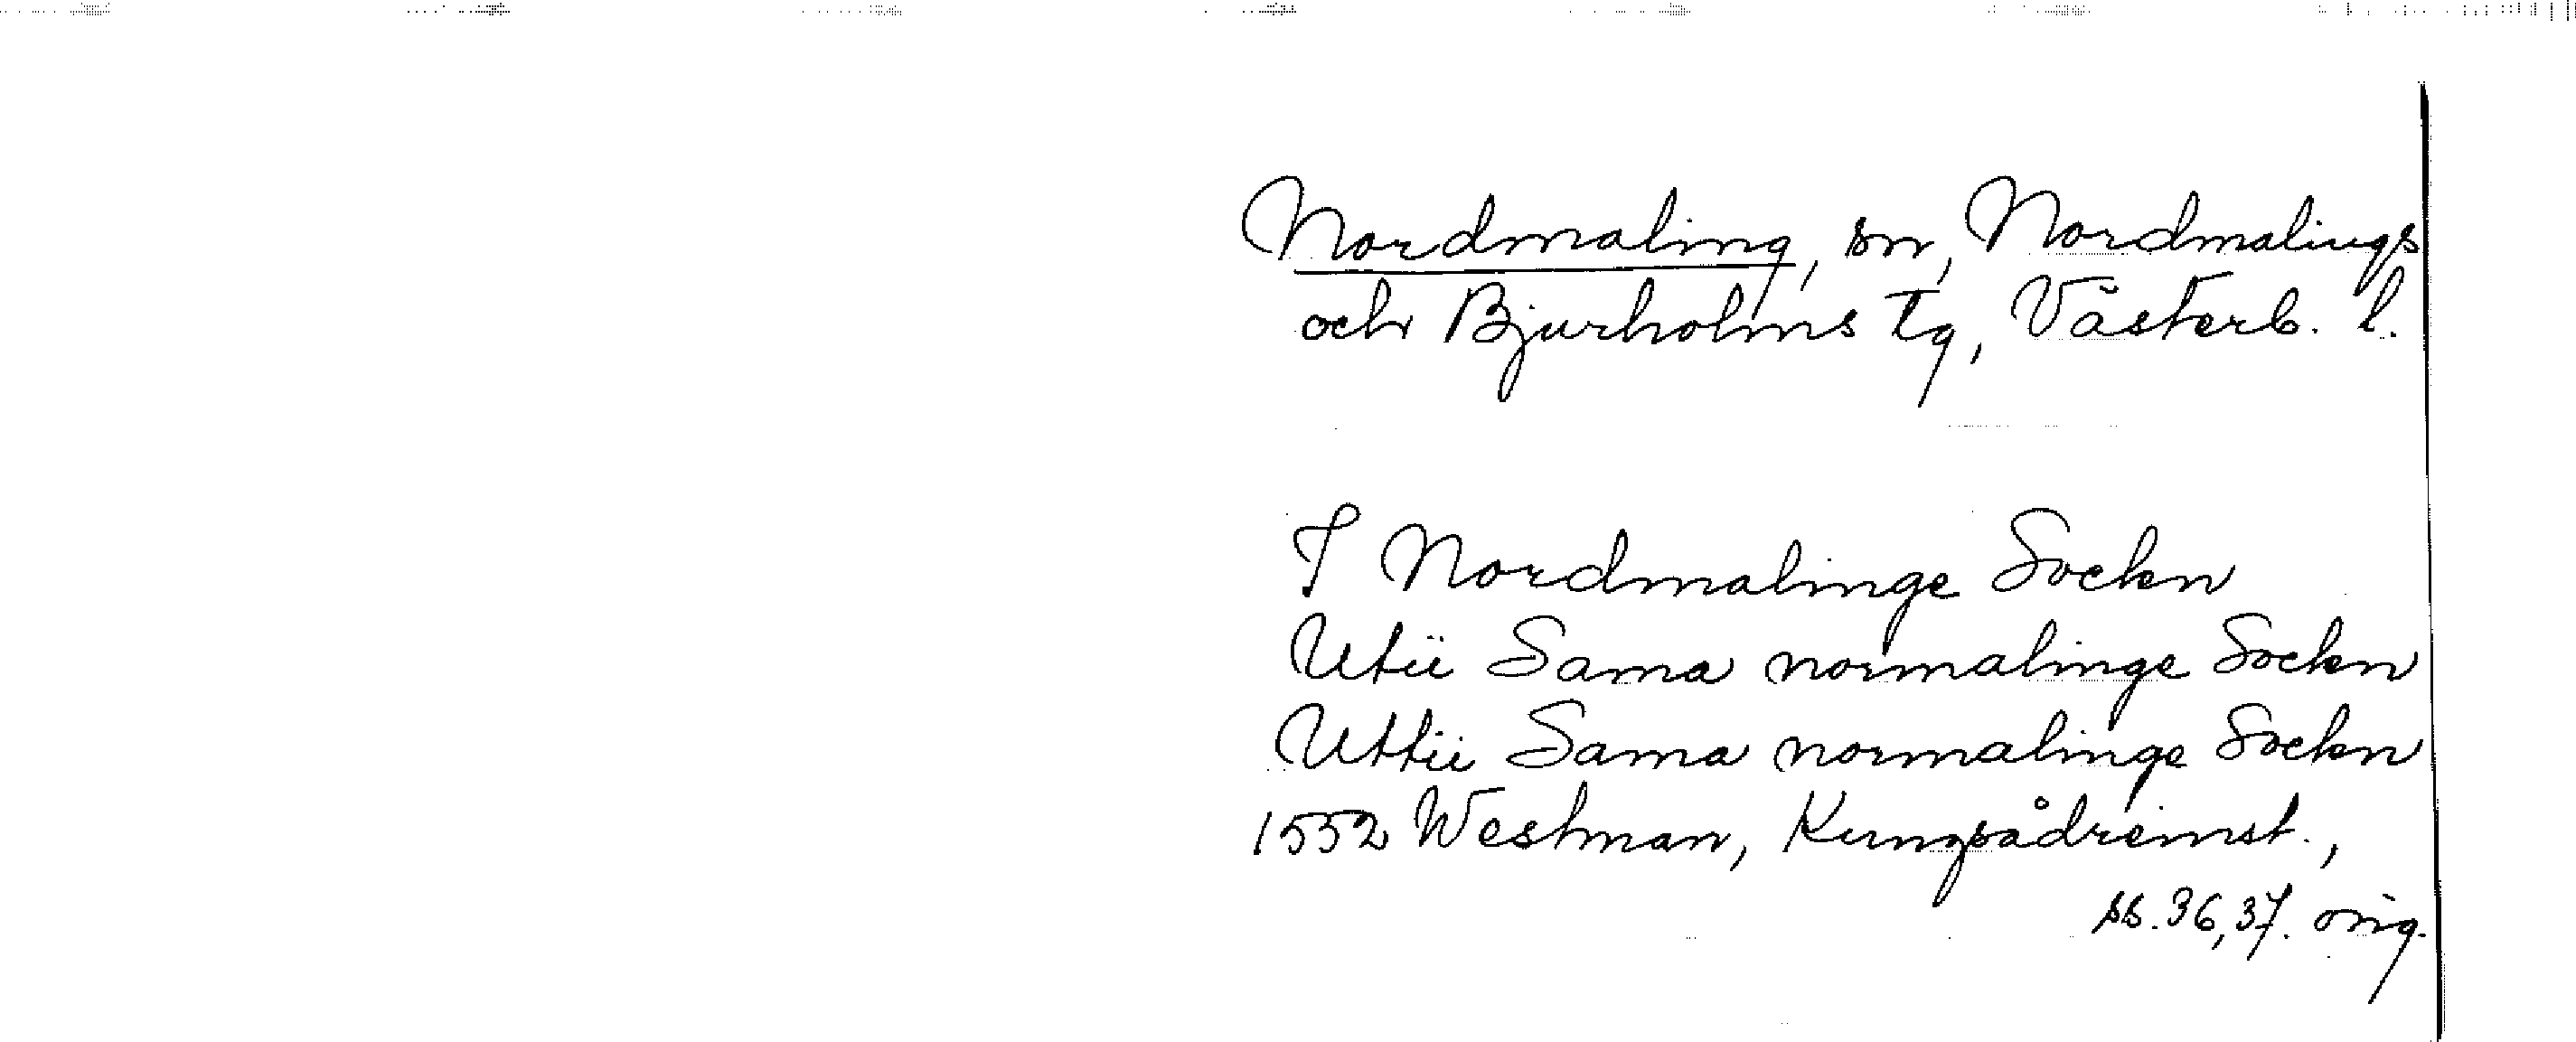 Nordmaling, sn, Nordmalings
och Bjurholms tg, Västerb. l.
I Nordmalinge Sockn
Utii Sama normalinge Sockn
Uttii Sama normalinge Sockn
1552 Westman, Kungsådreinst.,
ss. 36, 37. orig.